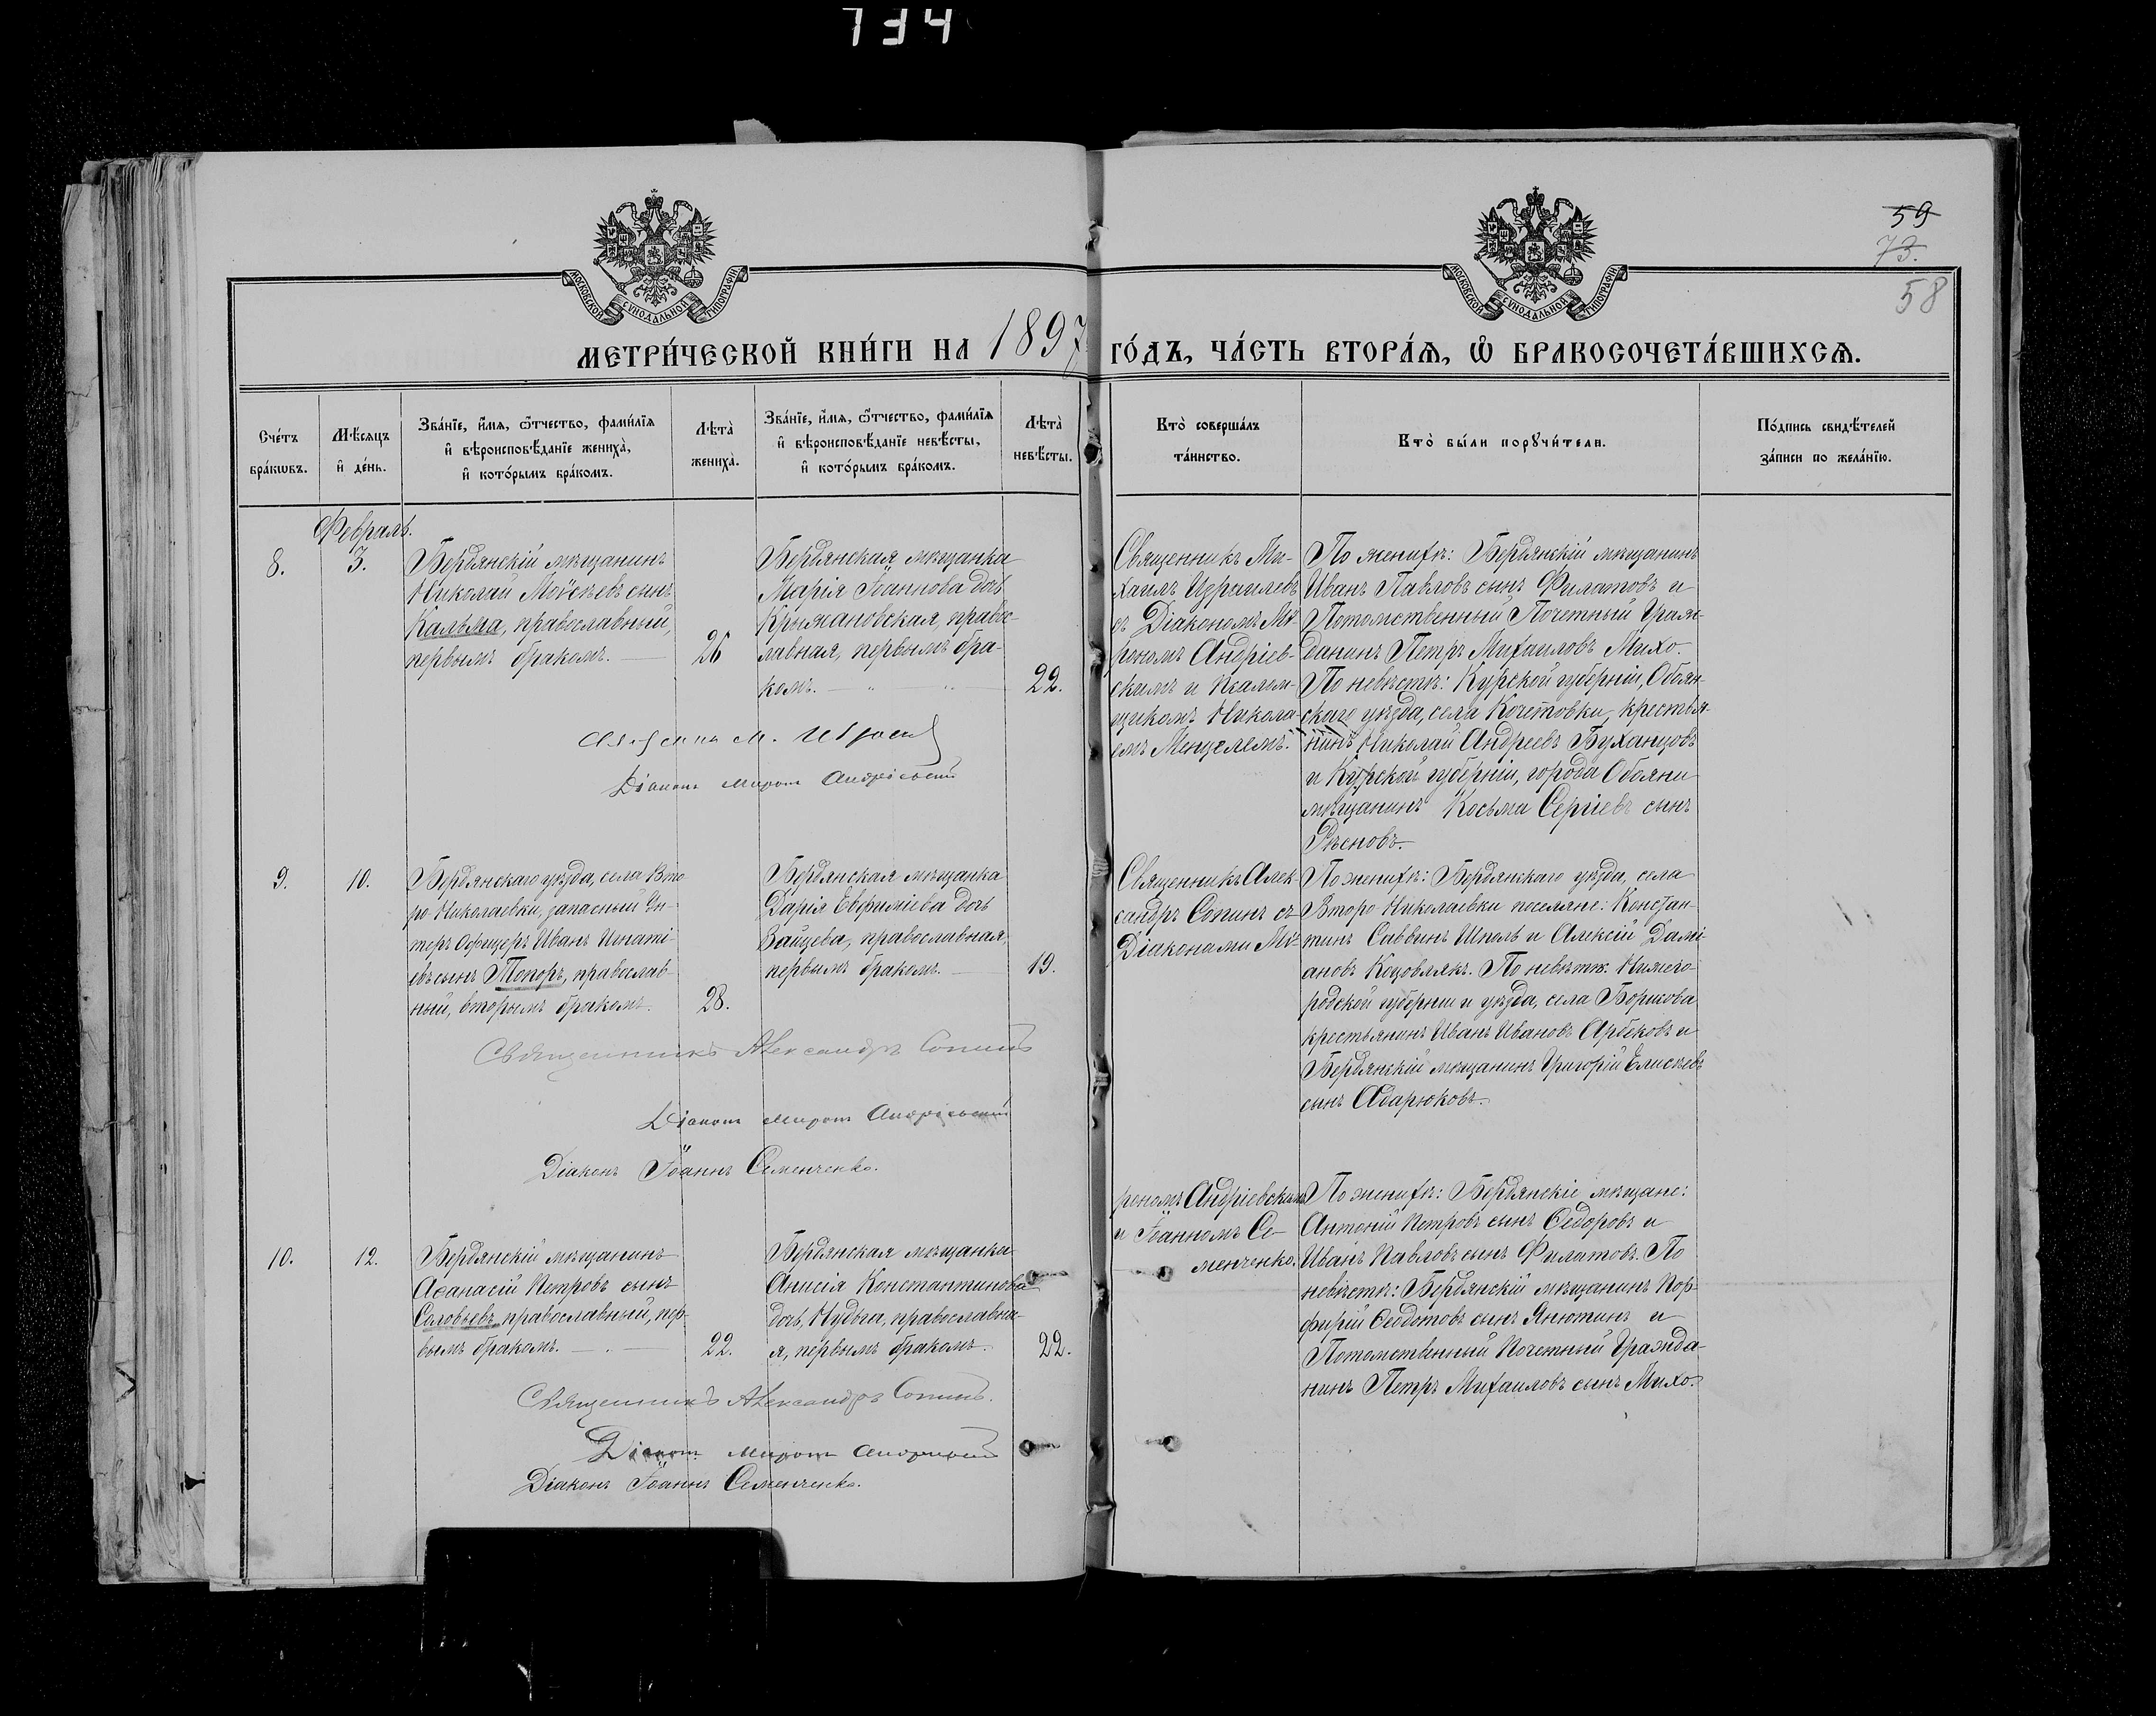 734
59
73.
58
МОСКОВСКОЙ СѴНОДАЛЬНОЙ ТИПОГРАФІИ
МОСКОВСКОЙ СѴНОДАЛЬНОЙ ТИПОГРАФІИ
МЕТРИ́ЧЕСКОЙ КНИ́ГИ НА 1897 ГО́ДЪ, ЧА́СТЬ ВТОРА́Ѧ, Ѽ БРАКОСОЧЕТА́ВШИХСѦ.
Сче́тъ бра́кѡвъ.
Мѣ́сяцъ и҆ де́нь.
Зва́нїе, и҆́мѧ, ѻ҆́тчество, фами́лїѧ и҆ вѣроисповѣ́данїе жениха̀, и҆ кото́рымъ бра́комъ.
Лѣ́та̀ жениха̀.
Зва́нїе, и҆́мѧ, ѻ҆́тчество, фами́лїѧ и҆ вѣроисповѣ́данїе невѣ́сты, и҆ кото́рымъ бра́комъ.
Лѣ́та̀ невѣ́сты.
Кто̀ соверша́лъ та́инство.
Кто̀ бы́ли порꙋчи́тели.
По́дпись свидѣ́телей за́писи по жела́нїю.
Февраль.
8.
3.
Бердянскій мѣщанинъ
Николай Моѵсеевъ сынъ
Кальма, православный,
первымъ бракомъ.
26
Бердянская мѣщанка
Марія Іоаннова дочь
Крыжановская, правос-
лавная, первымъ бра-
комъ.
22.
Священникъ Ми-
хаилъ Израилевъ
съ Діакономъ Мѵ-
рономъ Андріев-
скимъ и Псалом-
щикомъ Никола-
емъ Менцелемъ.
По женихѣ: Бердянскій мѣщанинъ
Иванъ Павловъ сынъ Филатовъ и
Потомственный Почетный Граж-
данинъ Петръ Михаиловъ Михо.
По невѣстѣ: Курской губерніи, Обоян-
скаго уѣзда, села Кочетовки, крестья-
нинъ Николай Андреевъ Буханцовъ
и Курской губерніи, города Обояни
мѣщанинъ Косьма Сергіевъ сынъ
Рѣсновъ.
Діаконъ Миронъ Андріевскій
9.
10.
Бердянскаго уѣзда, села Вто-
ро-Николаевки, запасный Ун-
теръ Офицеръ Иванъ Игнаті-
евъ сынъ Топоръ, православ-
ный, вторымъ бракомъ.
28.
Бердянская мѣщанка
Дарія Евфиміева дочь
Зайцева, православная,
первымъ бракомъ.
19.
Священникъ Алек-
сандръ Сопинъ съ
Діаконами Мѵ-
По женихѣ: Бердянскаго уѣзда, села
Второ Николаевки поселяне: Констан-
тинъ Саввинъ Шполь и Алексій Дамі-
ановъ Коцовлякъ. По невѣстѣ: Нижего-
родской губерніи и уѣзда, села Борисова
крестьянинъ Иванъ Ивановъ Арбековъ и
Бердянскій мѣщанинъ Григорій Елисѣевъ
сынъ Адарюковъ.
Священникъ Александръ Сопинъ
Діаконъ Миронъ Андріевскій
Діаконъ Іоаннъ Семенченко.
10.
12.
Бердянскій мѣщанинъ
Аѳанасій Петровъ сынъ
Соловьевъ, православный, пер-
вымъ бракомъ.
22.
Бердянская мѣщанка
Анисія Константинова
дочь, Нудьга, православна-
я, первымъ бракомъ.
22.
рономъ Андріевскимъ
и Іоанномъ Се-
менченко.
По женихѣ: Бердянскіе мѣщане:
Антоній Петровъ сынъ Ѳедоровъ и
Иванъ Павловъ сынъ Филатовъ. По
невѣстѣ: Бердянскій мѣщанинъ Пор-
фирій Ѳеодотовъ сынъ Янютинъ и
Потомственный Почетный Гражда-
нинъ Петръ Михаиловъ сынъ Михо.
Священникъ Александръ Сопинъ.
Діаконъ Миронъ Андріевскій
Діаконъ Іоаннъ Семенченко.